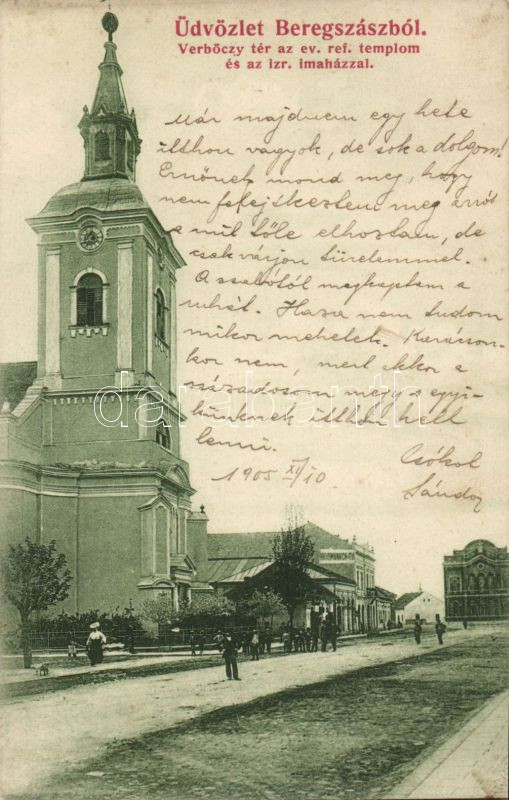 Üdvözlet Beregszászból.
Verböczy tér az ev. ref. templom
és az izr. imaházzal.
Már majdnem egy hete
itthon vagyok, de sok a dolgom!
Ernőnek mond meg, hogy
nem felejtkeztem meg arról
a mit tőle elhoztam, de
csak várjon türelemmel.
A szabótól megkaptam a
ruhát. Haza nem tudom
mikor mehetek. Karácson-
kor nem, mert akkor a
századosom még s egyi-
künknek itthon kell
lenni.
1905 XI/10
Csókol
Sándor
darabanth